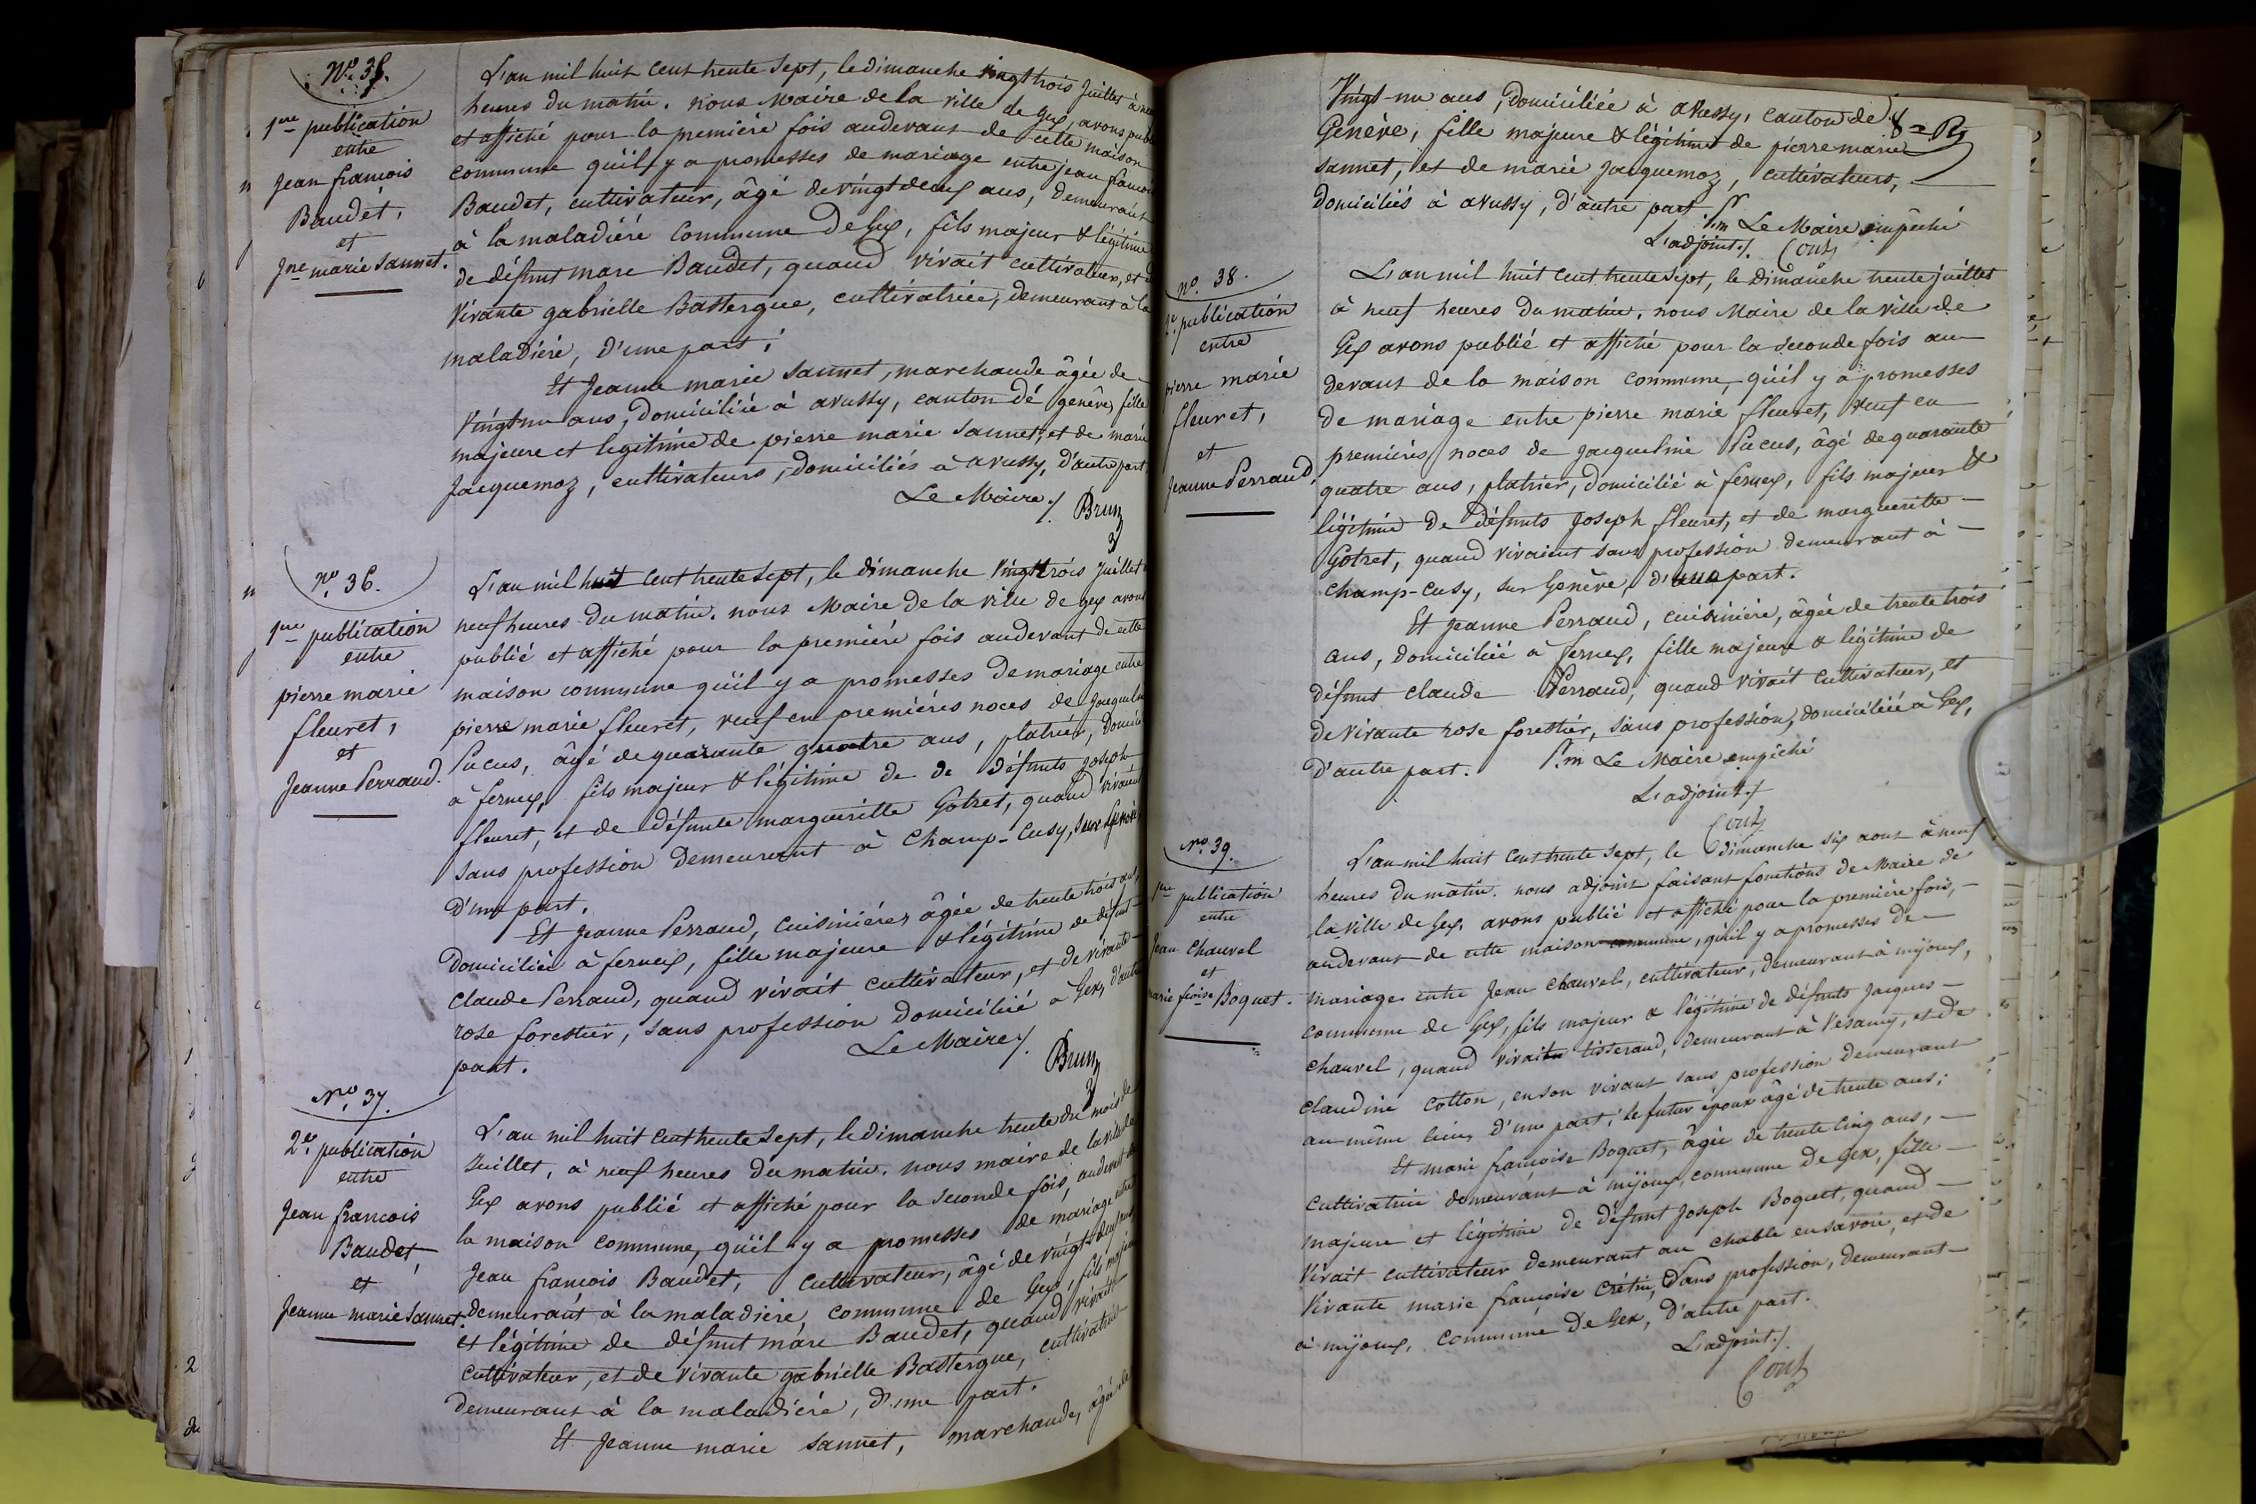 N.º 35.
1.re publication
entre
Jean françois
Baudet,
et
J.ne marie Sannet.
L'an mil huit cent trente sept, le dimanche vingt trois Juillet à neuf
heures du matin. nous Maire de la ville de Gex, avons publié
et affiché pour la première fois audevant de cette maison
commune qu'il y a promesses de mariage entre jean françois
Baudet, cultivateur, âgé de vingt deux ans, demeurant
à la maladière commune de Gex, fils majeur & légitime
de défunt marc Baudet, quand vivait cultivateur, et de
vivante gabrielle Bastergue, cultivatrice, demeurant à la
maladière, d'une part;
Et Jeanne marie Sannet, marchande âgée de
vingt un ans, domiciliée à avussy, canton de genève, fille
majeure et legitime de pierre marie Sannet, et de marie
Jacquemoz, cultivateurs, domiciliés à avussy, d'autre part.
Le Maire/. Brun
N.º 36.
1.re publication
entre
pierre marie
fleuret,
et
Jeanne Perraud.
L'an mil huit cent trente sept, le dimanche vingt trois Juillet à
neuf heures du matin. nous Maire de la ville de gex avons
publié et affiché pour la première fois audevant de cette
maison commune qu'il y a promesses de mariage entre
pierre marie fleuret, veuf en premières noces de Jacqueline
Pucus, âgé de quarante quatre ans, platrier, domicilié
à fernex, fils majeur & légitime de de défunts Joseph
fleuret, et de défunte marguerite Gotret, quand vivaient
sans profession demeurant à Champ-Cusy, sur Genève,
d'une part.
Et Jeanne Perraud, cuisinière, âgée de trente trois ans,
domiciliée à fernex, fille majeure & légitime de défunt
claude Perraud, quand vivait cultivateur, et de vivante
rose forestier, sans profession domiciliée à Gex, d'autre
part.
Le Maire/.
Brun
N.º 37.
2.e publication
entre
Jean françois
Baudet,
et
Jeanne marie Sannet.
L'an mil huit cent trente sept, le dimanche trente du mois de
Juillet, à neuf heures du matin. nous maire de la ville de
Gex avons publié et affiché pour la seconde fois, audevant de
la maison commune, qu'il y a promesses de mariage entre
Jean françois Baudet, cultivateur, âgé de vingt deux ans,
demeurant à la maladière, commune de Gex, fils majeur
et légitime de défunt marc Baudet, quand vivait
cultivateur, et de vivante gabrielle Bastergue, cultivatrice
demeurant à la maladière, d'une part.
Et Jeanne marie Sannet, marchande, âgée de
Vingt-un ans, domiciliée à avussy, canton de
Genève, fille majeure & légitime de pierre marie
Sannet, et de marie Jacquemoz, cultivateurs,
domiciliés à avussy, d'autre part.
P.m Le Maire empêché
L'adjoint/.
N.º 38.
2.e publication
entre
pierre marie
fleuret,
et
Jeanne Perraud,
L'an mil huit cent trente sept, le dimanche trente juillet
à neuf heures du matin. nous Maire de la ville de
Gex avons publié et affiché pour la seconde fois au
devant de la maison commune, qu'il y a promesses
de mariage entre pierre marie fleuret, veuf en
premières noces de jacqueline Pucus, âgé de quarante
quatre ans, platrier, domicilié à fernex, fils majeur &
légitime de défunts Joseph fleuret, et de marguerite
Gotret, quand vivaient sans profession demeurant à
champ-cusy, sur Genève, d'une part.
Et Jeanne Perraud, cuisinière, âgée de trente trois
ans, domiciliée à fernex, fille majeure & légitime de
défunt claude Perraud, quand vivait cultivateur, et
de vivante rose forestier, sans profession, domiciliée à Gex,
d'autre part. P.m Le Maire empêché
L'adjoint/.
N.º 39.
1.re publication
entre
Jean Chauvel
et
marie f.çoise Boquet.
L'an mil huit cent trente sept, le dimanche six aout à neuf
heures du matin. nous adjoint faisant fonctions de Maire de
la ville de Gex, avons publié et affiché pour la première fois,
audevant de cette maison commune, qu'il y a promesses de
mariage entre Jean Chauvel, cultivateur, demeurant à mijoux,
commune de Gex, fils majeur & légitime de défunts Jacques
Chauvel, quand vivait tisserand, demeurant à Vesancy, et de
claudine Cotton, en son vivant sans profession demeurant
au même lieu, d'une part; le futur époux âgé de trente ans;
Et marie françoise Boquet, âgée de trente cinq ans,
cultivatrice demeurant à mijoux, commune de Gex, fille
majeure et légitime de défunt Joseph Boquet, quand
vivait cultivateur demeurant au chable en savoie, et de
vivante marie françoise Cretin, sans profession, demeurant
à mijoux, commune de Gex, d'autre part.
L'adjoint/.